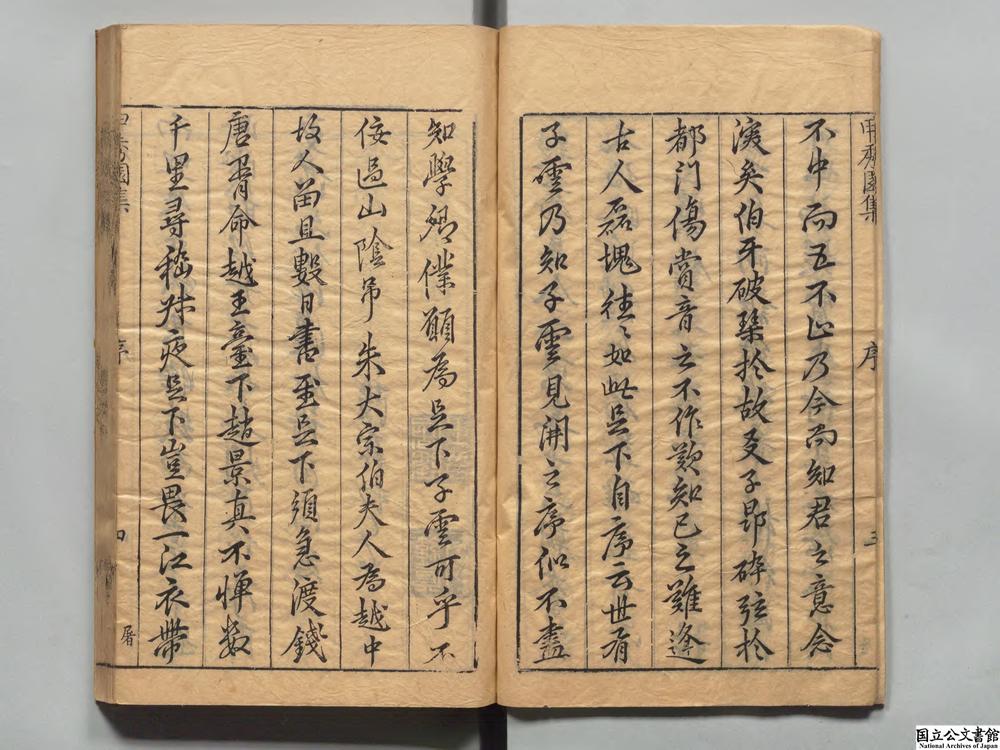 甲秀園集
序
三
不中而五不止乃今而知君之意念
淚矣伯牙破琴於故叟子昂碎弦於
都門傷賞音之不作歎知己之難逢
古人磊塊往〻如此足下自序云世有
子雲乃知子雲見聞之序似不盡
知學卿僕願為足下子雲可乎不
佞過山陰吊朱大宗伯夫人為越中
故人留且數日書至足下須急渡錢
唐胥命越王臺下趙景真不憚數
千里尋嵇叔夜足下豈畏一江衣帶
秀園集
序
四
屠
国立公文書館
National Archives of Japan